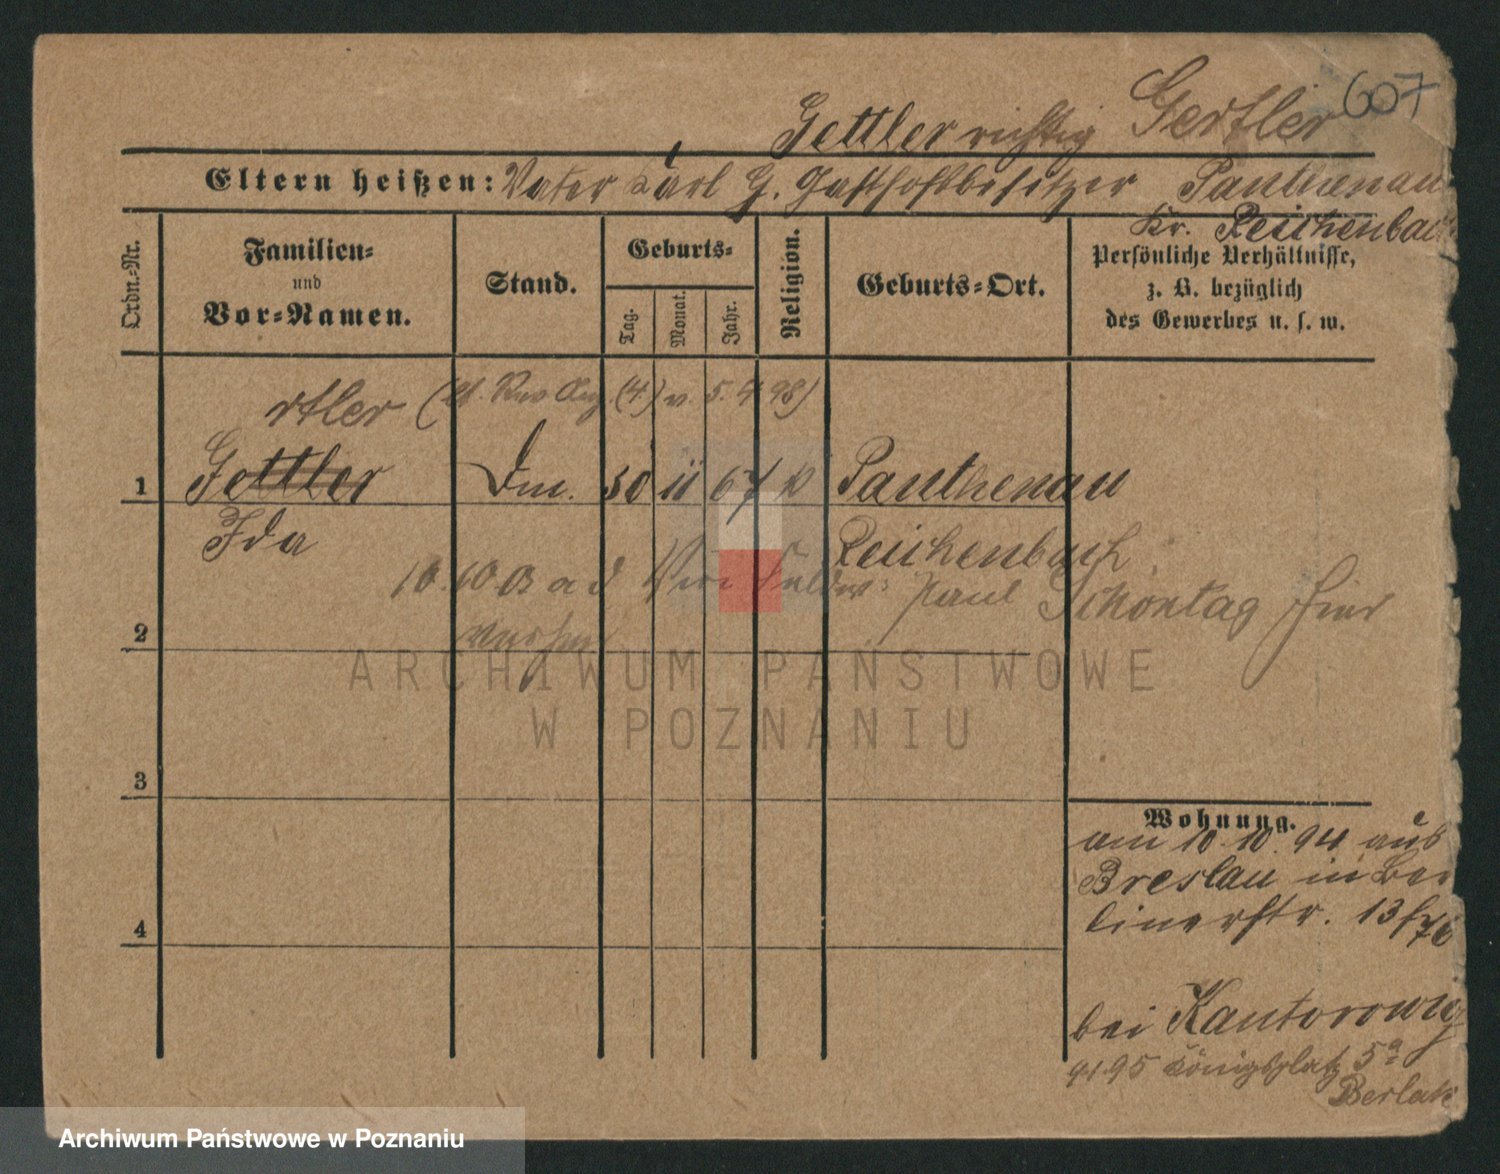 607
Gettler richtig Gertler
Eltern heißen: Vater Karl G. Gasthofbesitzer Panthenau
Kr. Reichenbach
Ordn.-Nr.
Familien-
und
Vor-Namen.
Stand.
Geburts-
Tag.
Monat.
Jahr.
Religion.
Geburts-Ort.
Persönliche Verhältnisse,
z. B. bezüglich
des Gewerbes u. s. w.
rtler (lt. (4.) v. 5. 4 98)
1 Gettler 30 11 67 k Panthenau
Ida Reichenbach
10. 10 a d Paul Schontag hier
2
3
4
Wohnung.
am 10. 10. 94 aus
Breslau in Ber
linerstr. 13
bei Kantorowicz
95 Königsplatz 5a
Berlak
ARCHIWUM PAŃSTWOWE
W POZNANIU
Archiwum Państwowe w Poznaniu